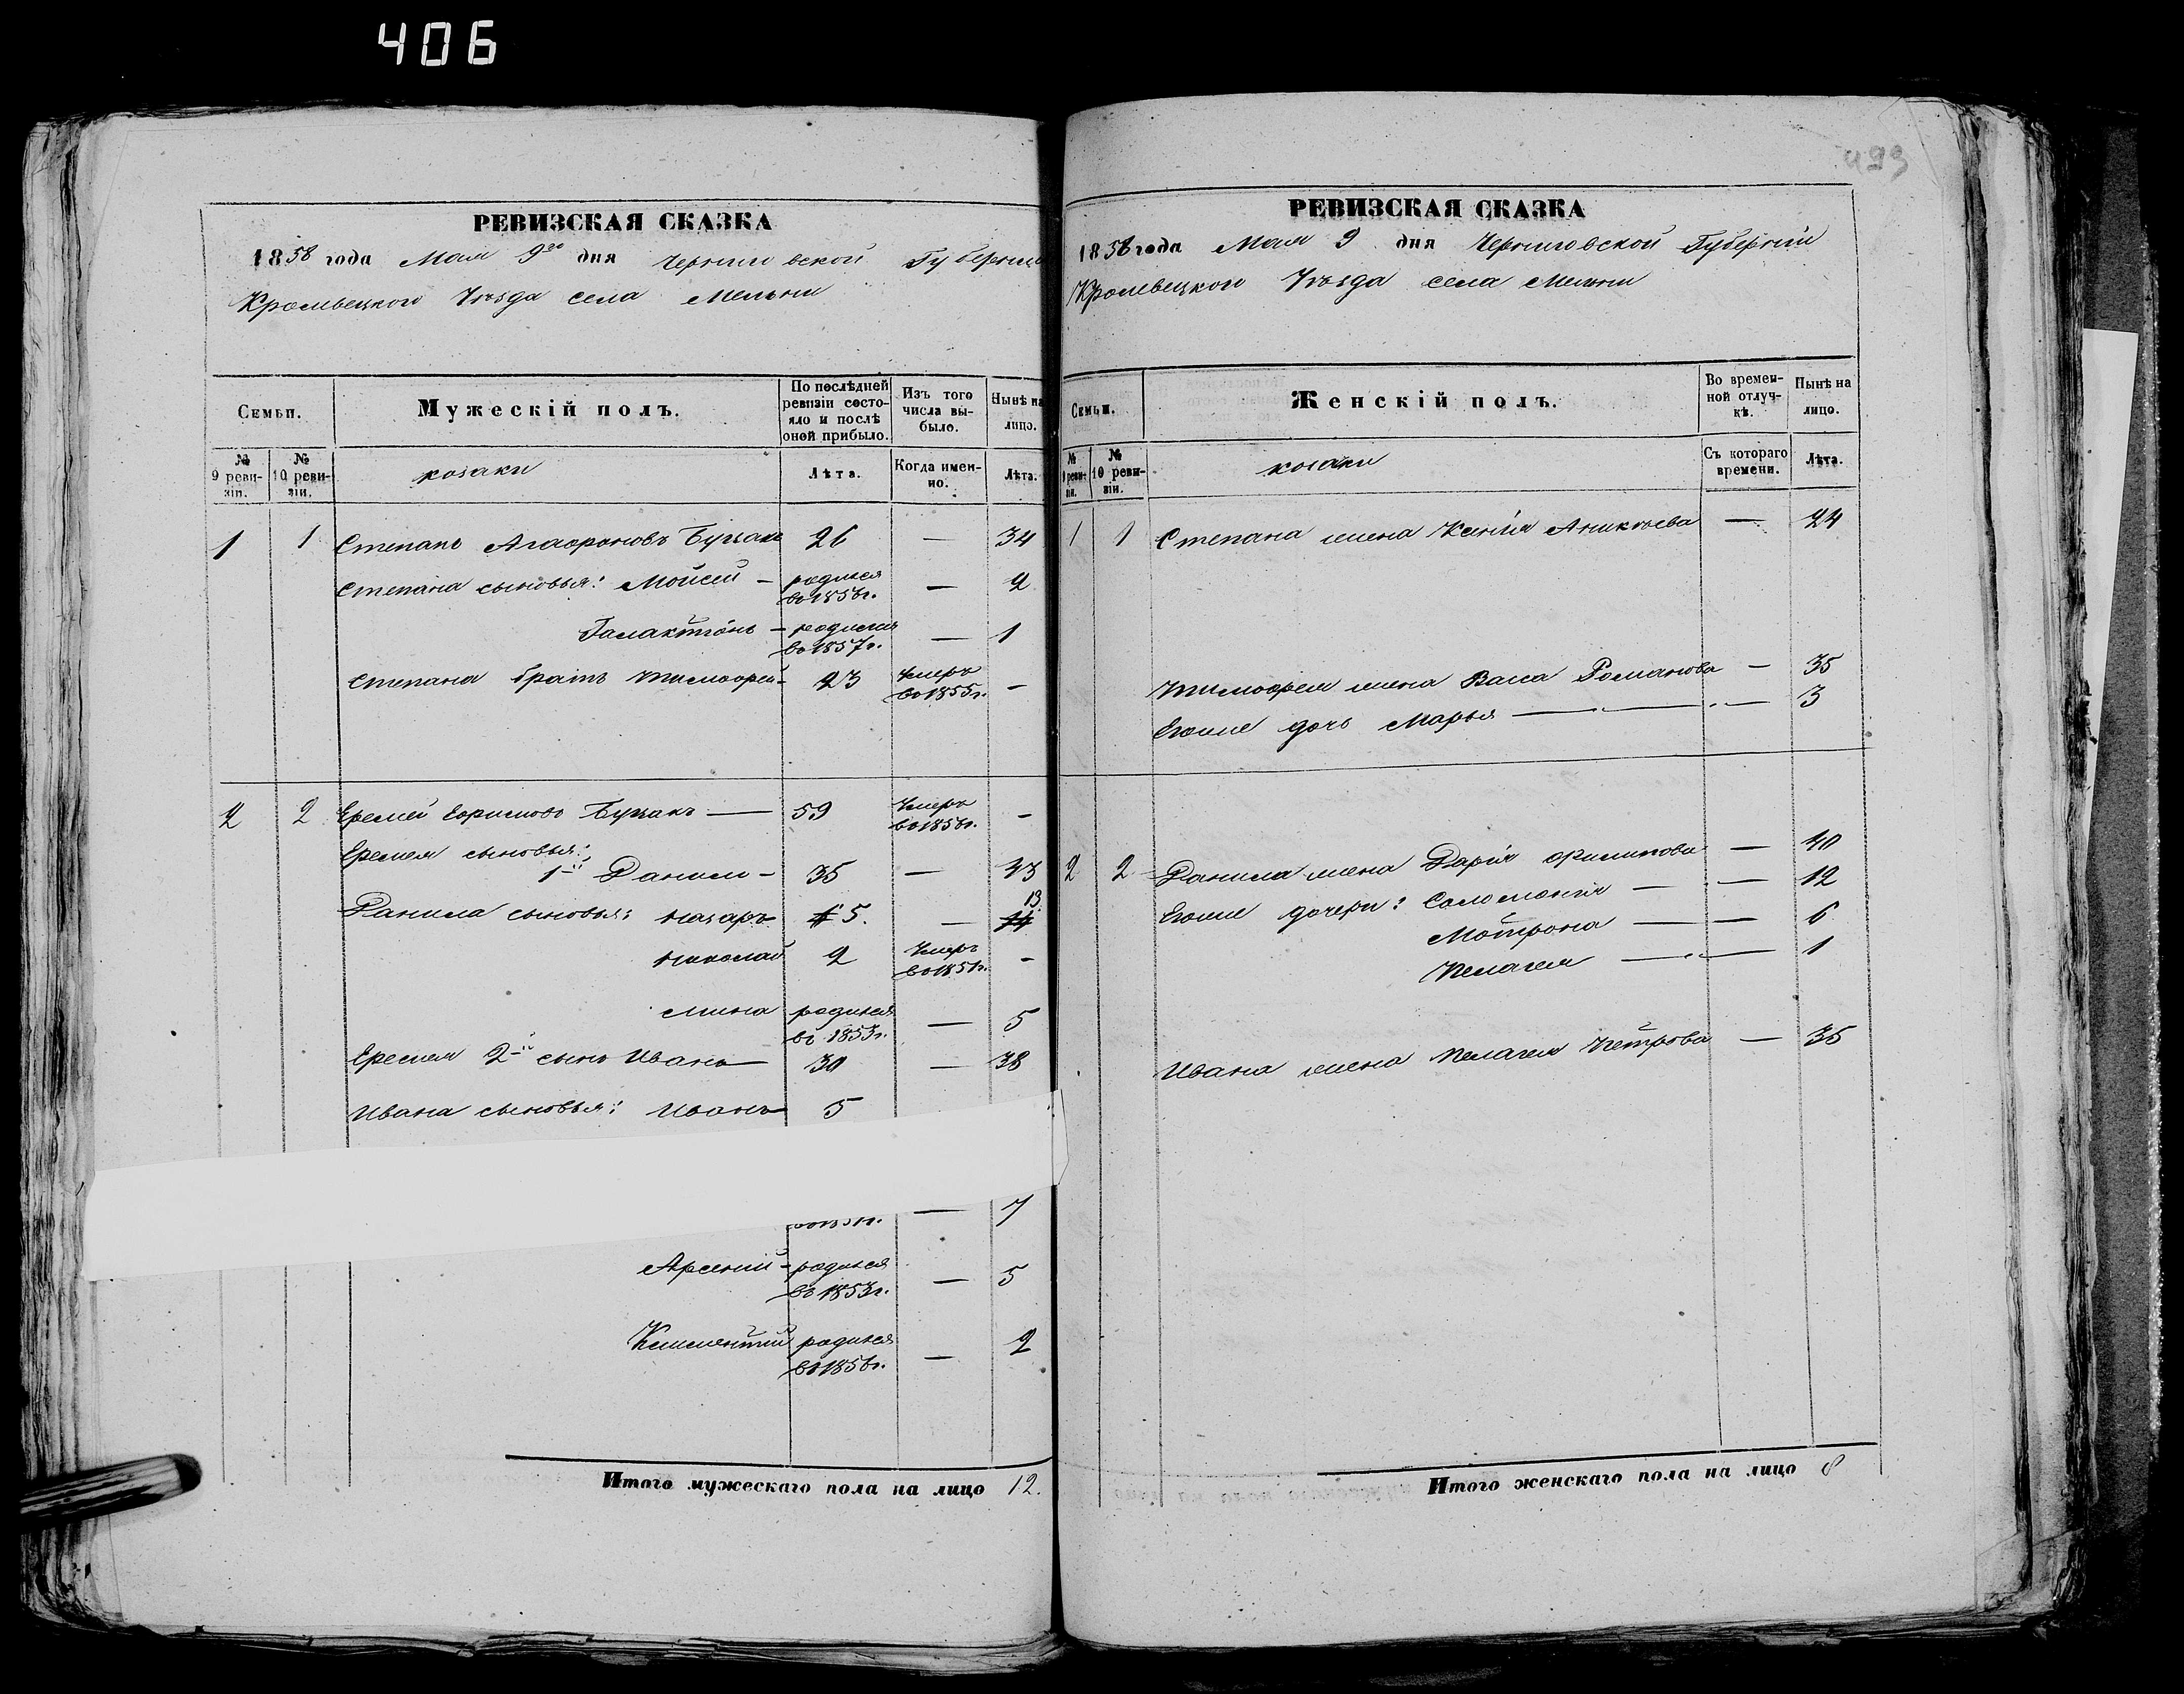 406
РЕВИЗСКАЯ СКАЗКА
1858 года Мая 9го дня Черниговской Губерніи
Кролевецкого Уѣзда села Мельни
Семьи.
Мужескій полъ.
По послѣдней ревизіи состояло и послѣ оной прибыло.
Изъ того числа выбыло.
Нынѣ на лицо.
№ 9 ревизіи.
№ 10 ревизіи.
козаки
Лѣта.
Когда именно.
Лѣта.
1 1 Степанъ Агафоновъ 26 — 34
Степана сыновья: Мойсей — родился во 1856г. — 2
Галактіонъ — родился во 1857г. — 1
Степана братъ Тимофей — 23 Умеръ во 1855г. —
2 2 Еремей Ефимовъ — 59 Умеръ во 1856г. —
Еремея сыновья:
1й Данило — 35 — 43
Данила сыновья: Назаръ 5. — 13
Николай 2 Умеръ во 1851г. —
Мина родился въ 1853г. — 5
Еремея 2й сынъ Иванъ — 30 — 38
Ивана сыновья: Иванъ 5
— 7
Арсеній — родился во 1853г. — 5
Климентій родился во 1856г. — 2
Итого мужескаго пола на лицо 12.
493
РЕВИЗСКАЯ СКАЗКА
1858 года Мая 9 дня Черниговской Губерніи
Кролевецкого Уѣзда села Мельни
Семьи.
Женскій полъ.
Во временной отлучкѣ.
Нынѣ на лицо.
№ 9 ревизіи.
№ 10 ревизіи.
козаки
Съ котораго времени.
Лѣта.
1 1 Степана жена Ксенія Аникѣева — 24
Тимофея жена Васа Романова — 35
Егоже дочь Марья — — 3
2 2 Данила жена Дарія Филипова — 40
Егоже дочери: Соломонія — — 12
Мотрона — — 6
Пелагея — — 1
Ивана жена Пелагея Петрова — 35
Итого женскаго пола на лицо 8